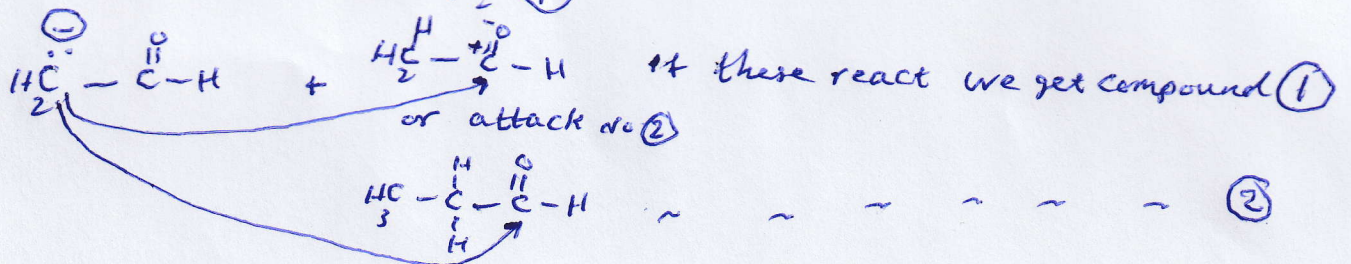 ⊖ H O
H₂C̈ — C — H + H₂C — ⁺C — H If these react we get compound ①
or attack No ②
H O
H₃C - C - C - H ~ ~ ~ ~ ~ ~ ②
H